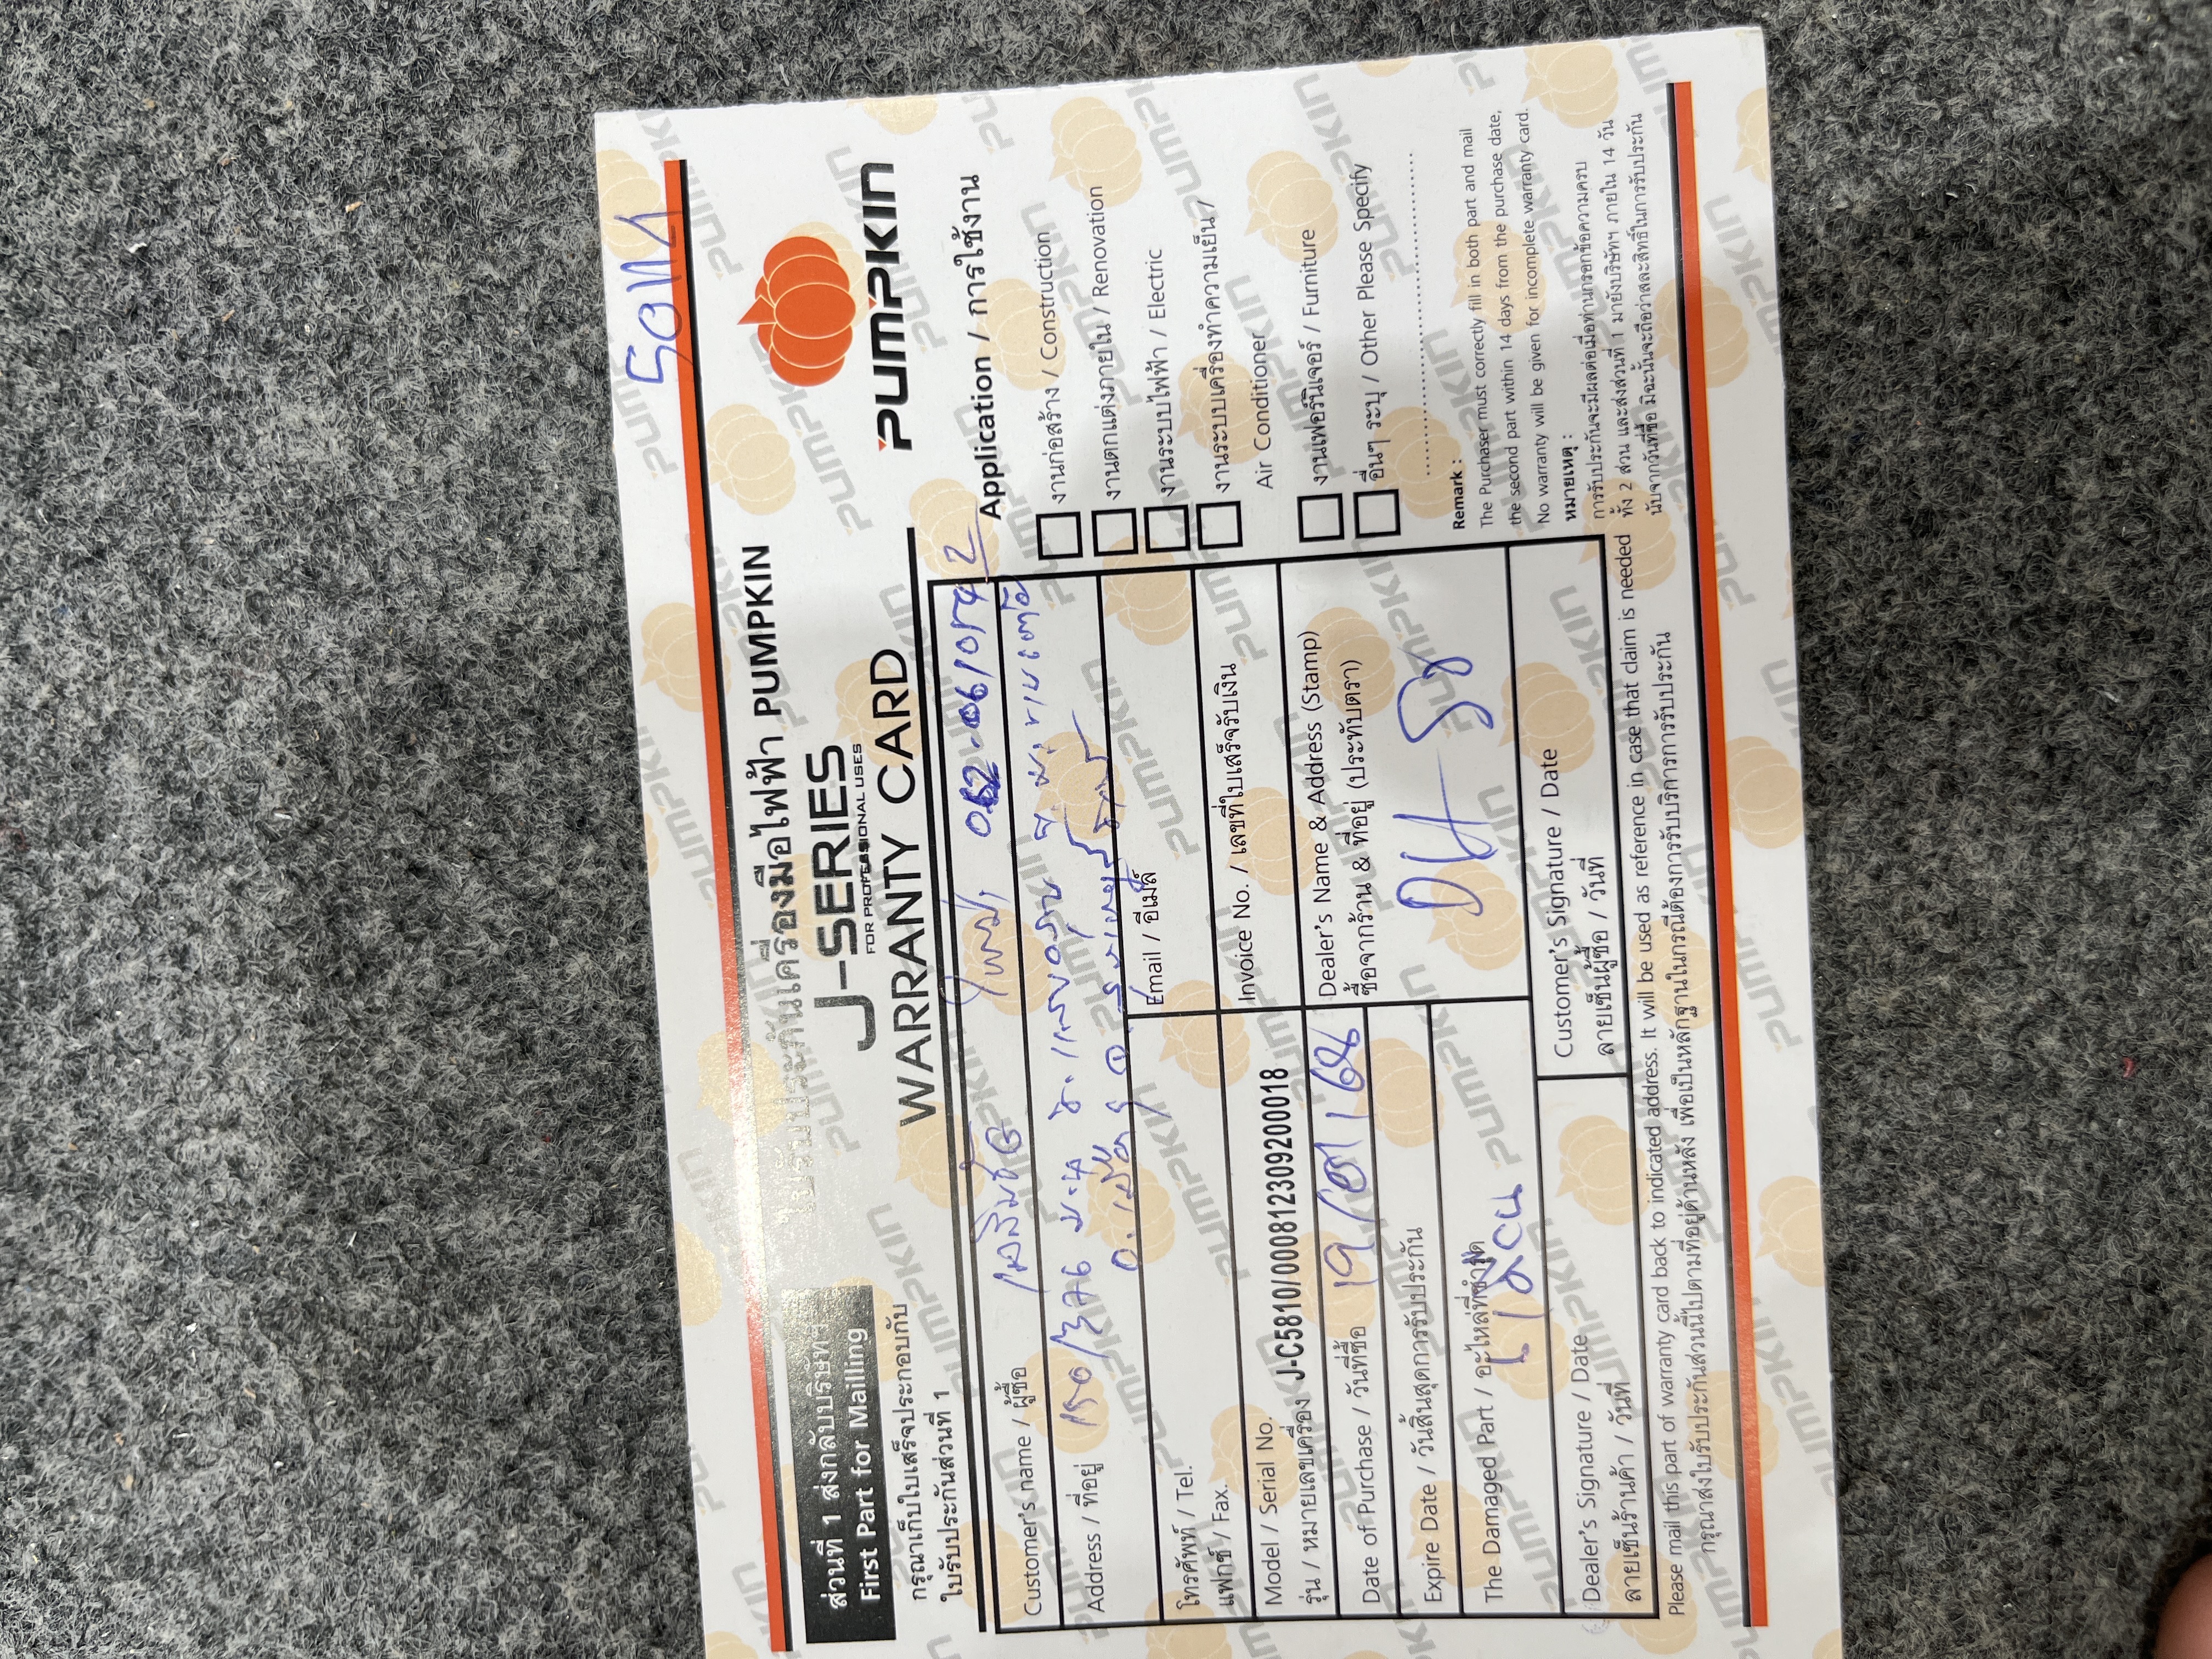 ส่วนที่ 1 ส่งกลับบริษัทฯ
First Part for Mailling
กรุณาเก็บใบเสร็จประกอบกับ
ใบรับประกันส่วนที่ 1
ใบรับประกันเครื่องมือไฟฟ้า PUMPKIN
J-SERIES
FOR PROFESSIONAL USES
WARRANTY CARD
PUMPKIN
Customer's name / ผู้ซื้อ
Address / ที่อยู่ 150/
โทรศัพท์ / Tel.
แฟกซ์ / Fax.
Email / อีเมล์
Model / Serial No.
รุ่น / หมายเลขเครื่อง J-C5810/00081230920018
Invoice No. / เลขที่ใบเสร็จรับเงิน
Date of Purchase / วันที่ซื้อ 19/
Dealer's Name & Address (Stamp)
ซื้อจากร้าน & ที่อยู่ (ประทับตรา)
DH
Expire Date / วันสิ้นสุดการรับประกัน
The Damaged Part / อะไหล่ที่ชำรุด
Dealer's Signature / Date
ลายเซ็นร้านค้า / วันที่
Customer's Signature / Date
ลายเซ็นผู้ซื้อ / วันที่
Application / การใช้งาน
งานก่อสร้าง / Construction
งานตกแต่งภายใน / Renovation
งานระบบไฟฟ้า / Electric
งานระบบเครื่องทำความเย็น /
Air Conditioner
งานเฟอร์นิเจอร์ / Furniture
อื่นๆ ระบุ / Other Please Specify
Remark :
The Purchaser must correctly fill in both part and mail
the second part within 14 days from the purchase date,
No warranty will be given for incomplete warranty card.
หมายเหตุ :
การรับประกันจะมีผลต่อเมื่อท่านกรอกข้อความครบ
ทั้ง 2 ส่วน และส่งส่วนที่ 1 มายังบริษัทฯ ภายใน 14 วัน
นับจากวันที่ซื้อ มิฉะนั้นจะถือว่าสละสิทธิ์ในการรับประกัน
Please mail this part of warranty card back to indicated address. It will be used as reference in case that claim is needed
กรุณาส่งใบรับประกันส่วนนี้ไปตามที่อยู่ด้านหลัง เพื่อเป็นหลักฐานในกรณีต้องการรับบริการการรับประกัน